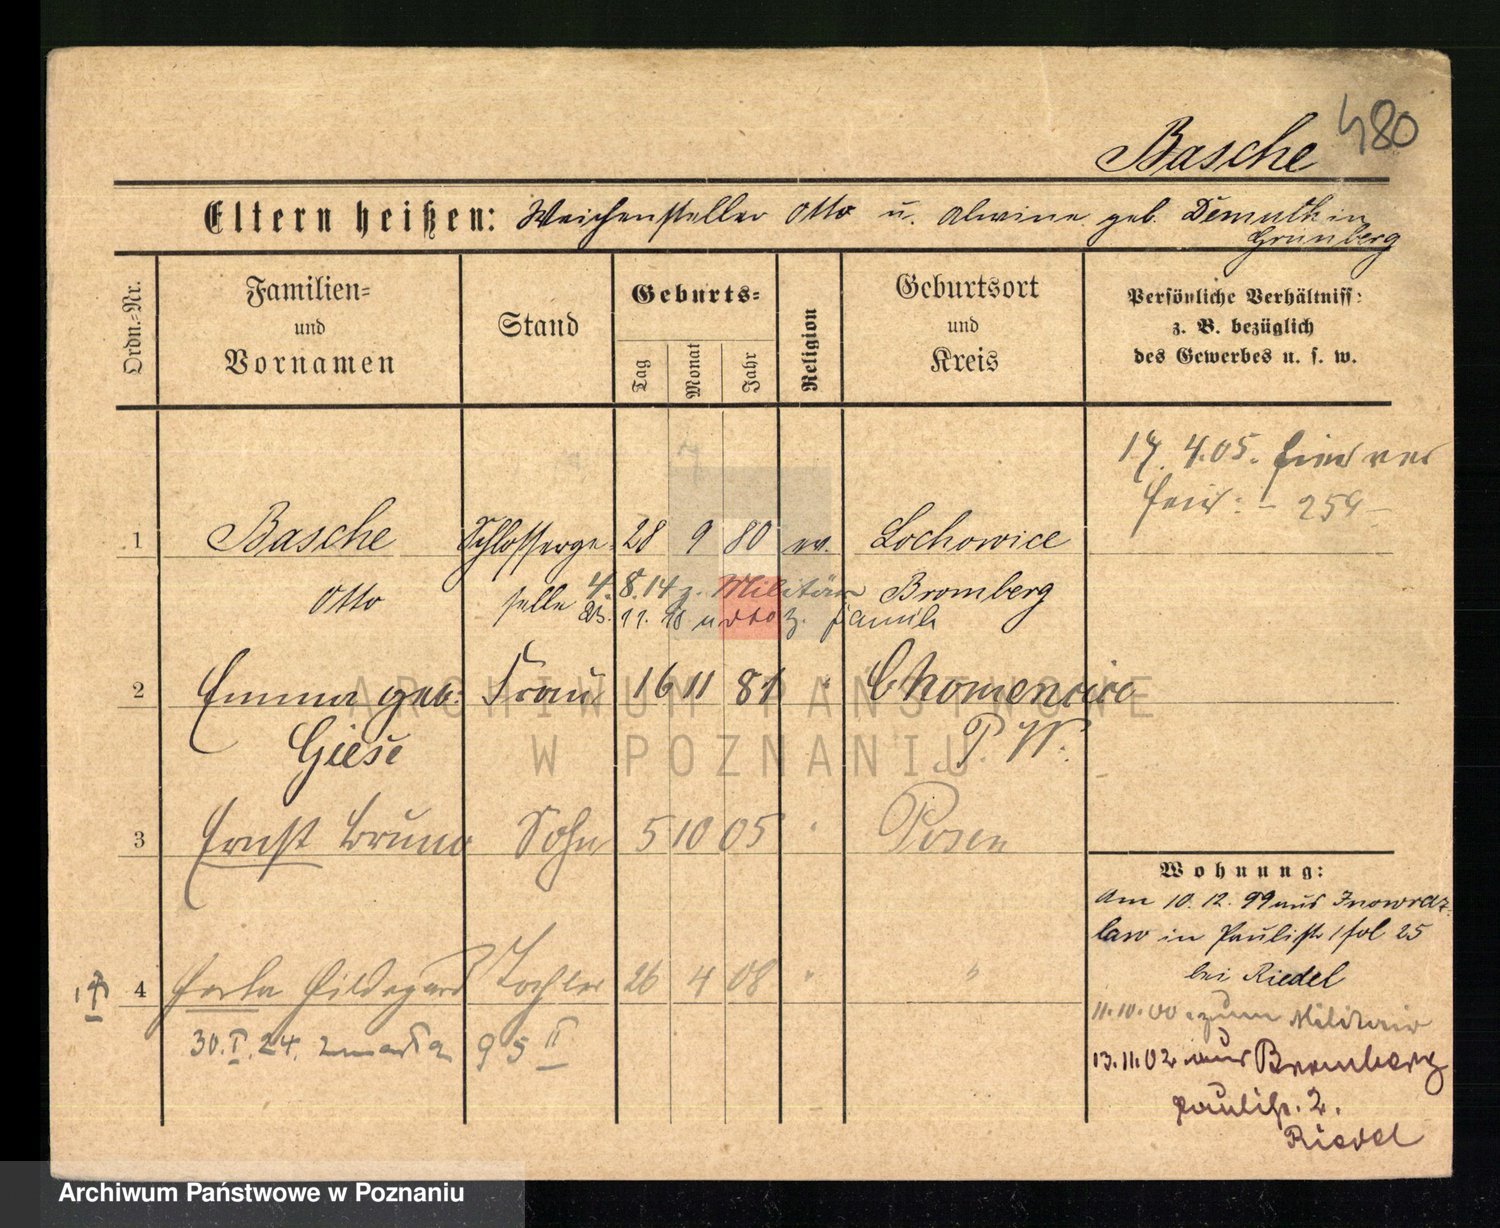 480
Basche
Eltern heißen: Weichensteller Otto u. Alwine geb. Demuth in
Grünberg
Ordn.-Nr.
Familien-
und
Vornamen
Stand
Geburts-
Tag
Monat
Jahr
Religion
Geburtsort
und
Kreis
Persönliche Verhältniss:
z. B. bezüglich
des Gewerbes u. s. w.
17. 4. 05.
259
1 Basche Schlosserge- 28 9 80 ev. Lochowice
Otto selle 4. 8. 14 z. Militär Bromberg
z. Famil
2 Emma geb. Frau 16 11 81 "
Giese P. W.
3 Ernst Bruno Sohn 5 10 05 " Posen
4 Hildegard Tochter 26 4 08 " "
30. I. 24. 95 II
Wohnung:
Am 10. 12. 99 aus Inowraz-
law in Paulistr 1 fol 25
bei Riedel
11.10.00 zum Militair
13.11.02 aus Bromberg
Paulistr. 2.
Riedel
ARCHIWUM PAŃSTWOWE
W POZNANIU
Archiwum Państwowe w Poznaniu